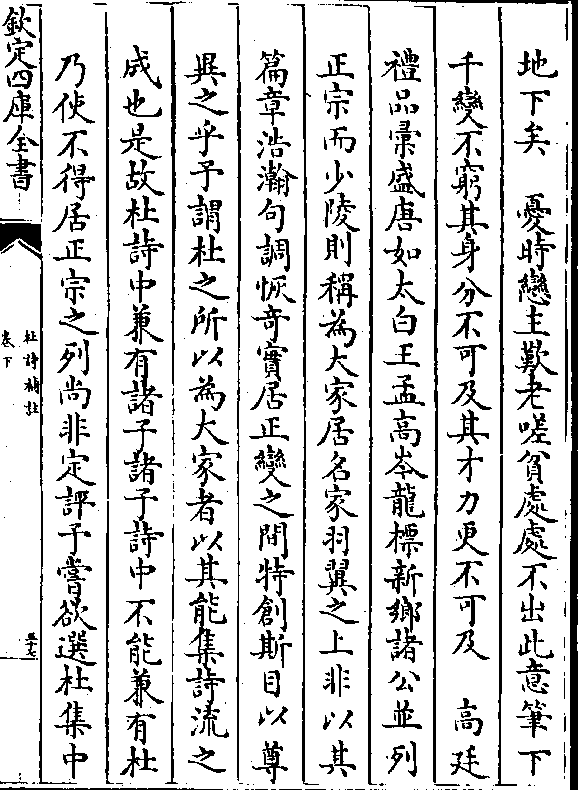 地下矣　憂時戀主歎老嗟貧處處不出此意筆下
千變不窮其身分不可及其才力更不可及　高廷
禮品彚盛唐如太白王孟高岑龍標新鄉諸公並列
正宗而少陵則稱為大家居名家羽翼之上非以其
篇章浩瀚句調恢奇實居正變之間特創斯目以尊
異之乎予謂杜之所以為大家者以其能集詩流之
成也是故杜詩中兼有諸子諸子詩中不能兼有杜
乃使不得居正宗之列尚非定評予嘗欲選杜集中
欽定四庫全書
杜詩補註
卷下